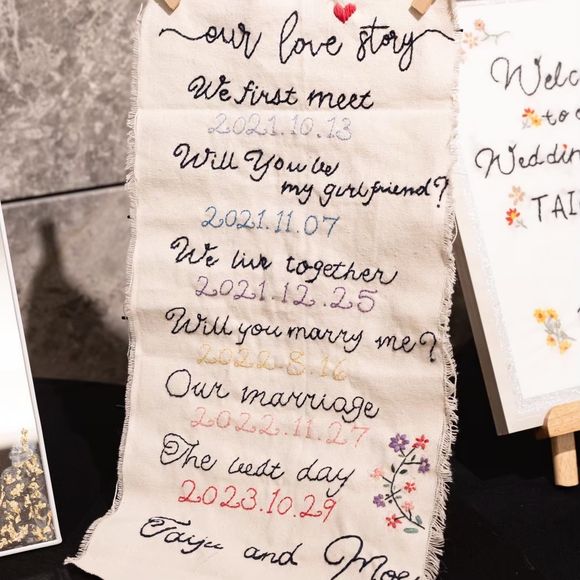 our love story
We first meet
2021.10.13
Will You be
my girlfriend?
2021.11.07
We live together
2021.12.25
Will you marry me?
2022.8.16
Our marriage
2022.11.27
The westt day
2023.10.29
Taiju and Moe
Welc
to o
Weddin
TAI